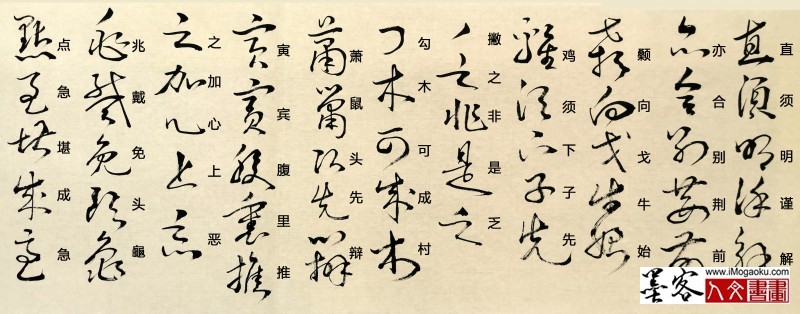 直须明谨解
亦合别荆前
颡向戈牛始
鸡须下子先
撇之非是乏
勾木可成村
萧鼠头先辩
寅宾腹里推
之加心上恶
兆戴免头龜
点急堪成急
www.iMogaoku.com
墨客 人文書畫